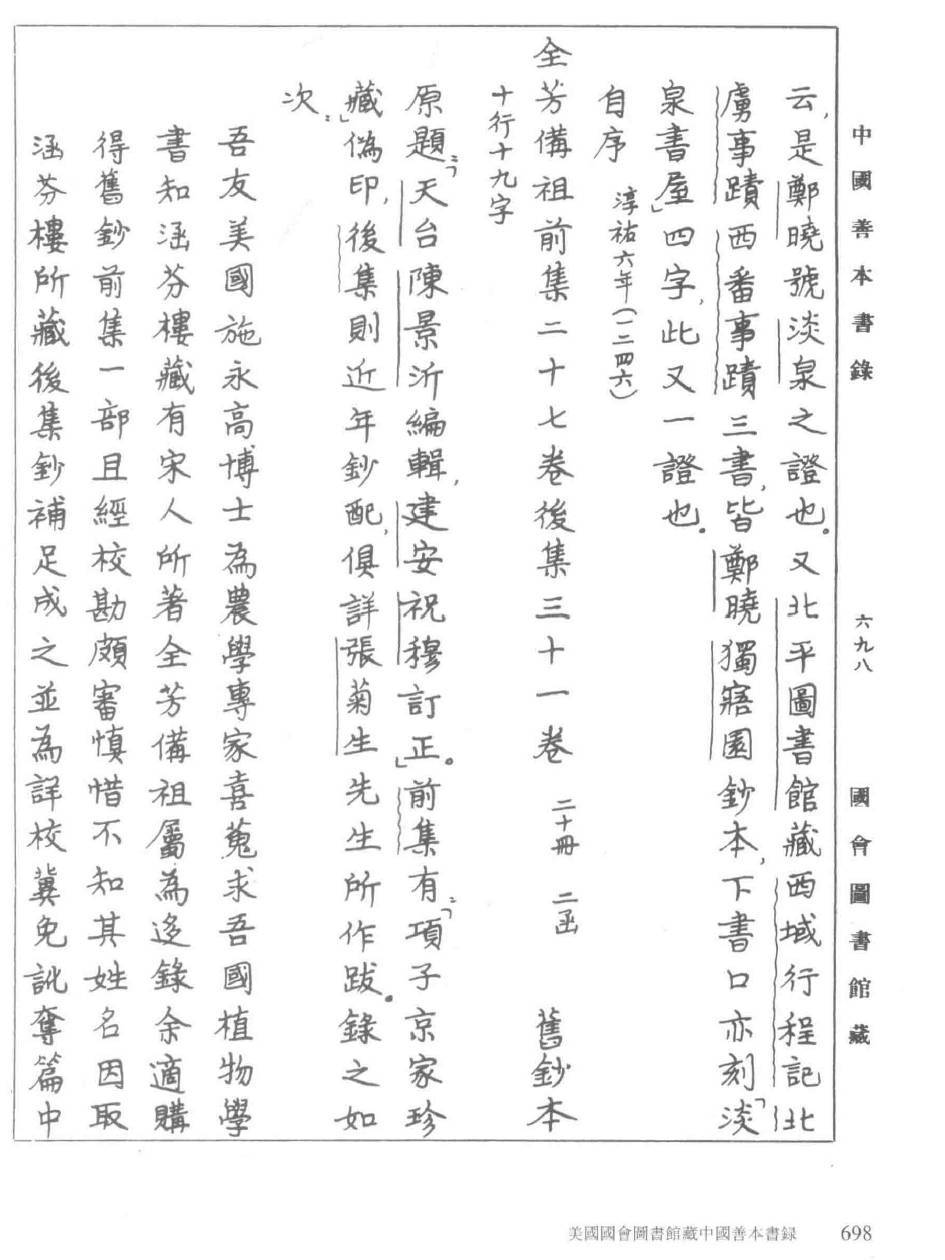 中國善本書錄　六九八　國會圖書館藏
云，是鄭曉號淡泉之證也。又北平圖書館藏西域行程記北
虜事蹟西番事蹟三書，皆鄭曉獨寤園鈔本，下書口亦刻「淡
泉書屋」四字，此又一證也。
自序　淳祐六年（一二四六）
全芳備祖前集二十七卷後集三十一卷　二十冊　二函　舊鈔本
十行十九字
原題：「天台陳景沂編輯，建安祝穆訂正。」前集有：「項子京家珍
藏」偽印，後集則近年鈔配，俱詳張菊生先生所作跋。錄之如
次：
吾友美國施永高博士為農學專家喜蒐求吾國植物學
書知涵芬樓藏有宋人所著全芳備祖屬為迻錄余適購
得舊鈔前集一部且經校勘頗審慎惜不知其姓名因取
涵芬樓所藏後集鈔補足成之並為詳校冀免訛奪篇中
美國國會圖書館藏中國善本書録　698